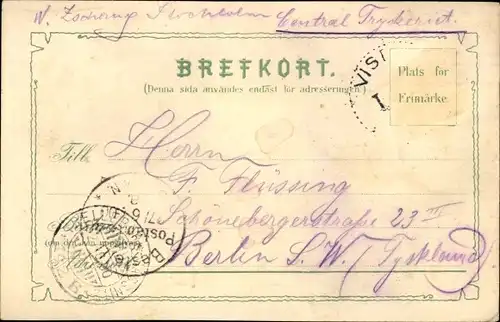 W. Zschang Stockholm Central Tryckeriet.
BREFKORT.
(Denna sida användes endast för adresseringen.)
VIS
Plats för
Frimärke.
Till Herrn
F. Flüssing
Schönebergerstraße 23 III
Berlin S.W. (Tyskland)
Bestellt
Postamt